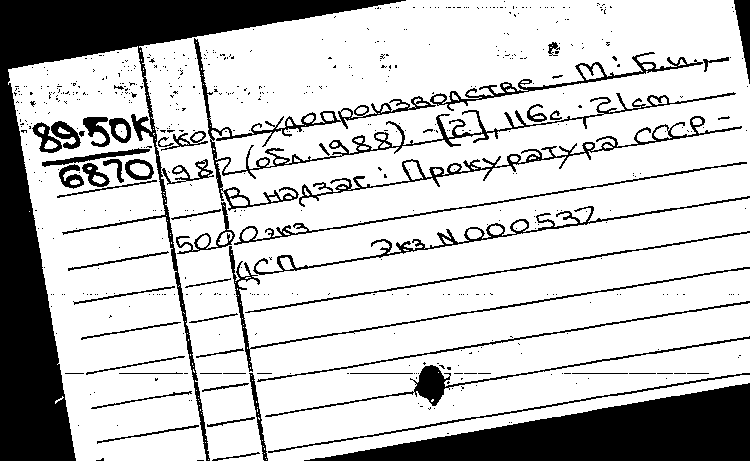 89.50К
6870
ском судопроизводстве - М.: Б.и.,
1987 (обл. 1988). - [2], 116с.; 21см.
В надзаг.: Прокуратура СССР. -
5000экз
ДСП. Экз. N 000537.